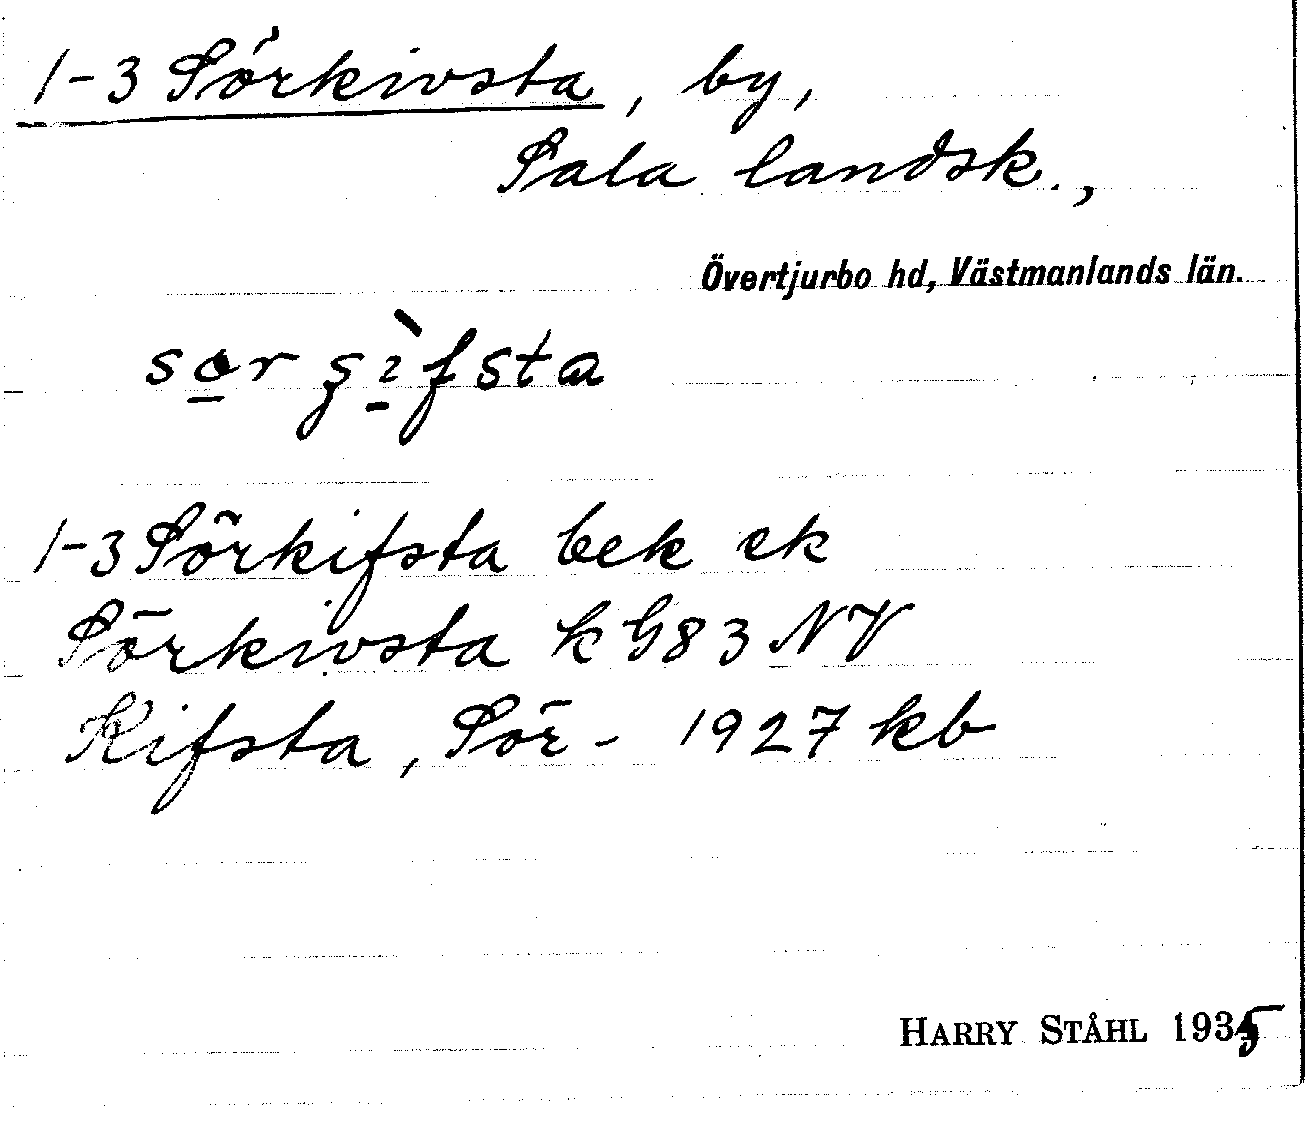 1-3 Sörkivsta, by,
Sala landsk.,
Övertjurbo hd, Västmanlands län.
1-3 Sörkifsta bek ek
Sörkivsta k G83 NV
Kifsta, Sör- 1927 kb
HARRY STÅHL 1935